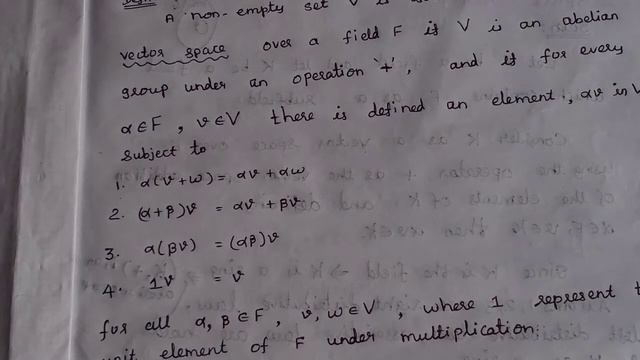 A non-empty set V is
vector space over a field F if V is an abelian
group under an operation '+', and if for every
α ∈ F, v ∈ V there is defined an element, αv in V
subject to
1. α(v+w) = αv + αw
2. (α+β)v = αv + βv
3. α(βv) = (αβ)v
4. 1v = v
for all α, β ∈ F, v, w ∈ V, where 1 represent
unit element of F under multiplication.